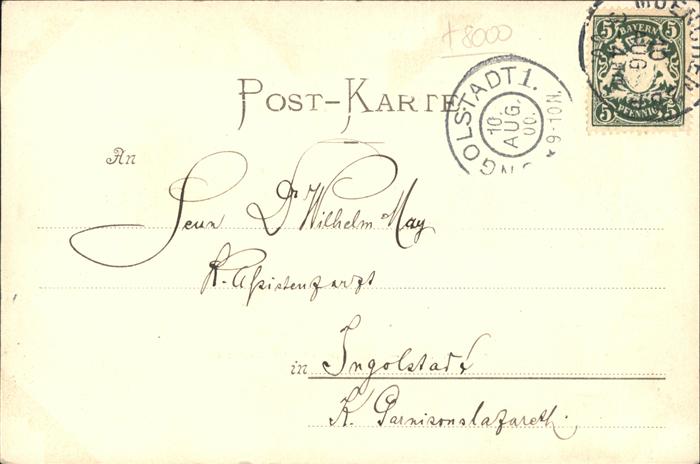 +8000
5 BAYERN 5
5 PFENNIG 5
POST-KARTE
INGOLSTADT 1.
10.
AUG.
00.
9-10 N.
An
Herrn Dr Wilhelm May
K. Assistenzarzt
in Ingolstadt
K. Garnisonslazareth.